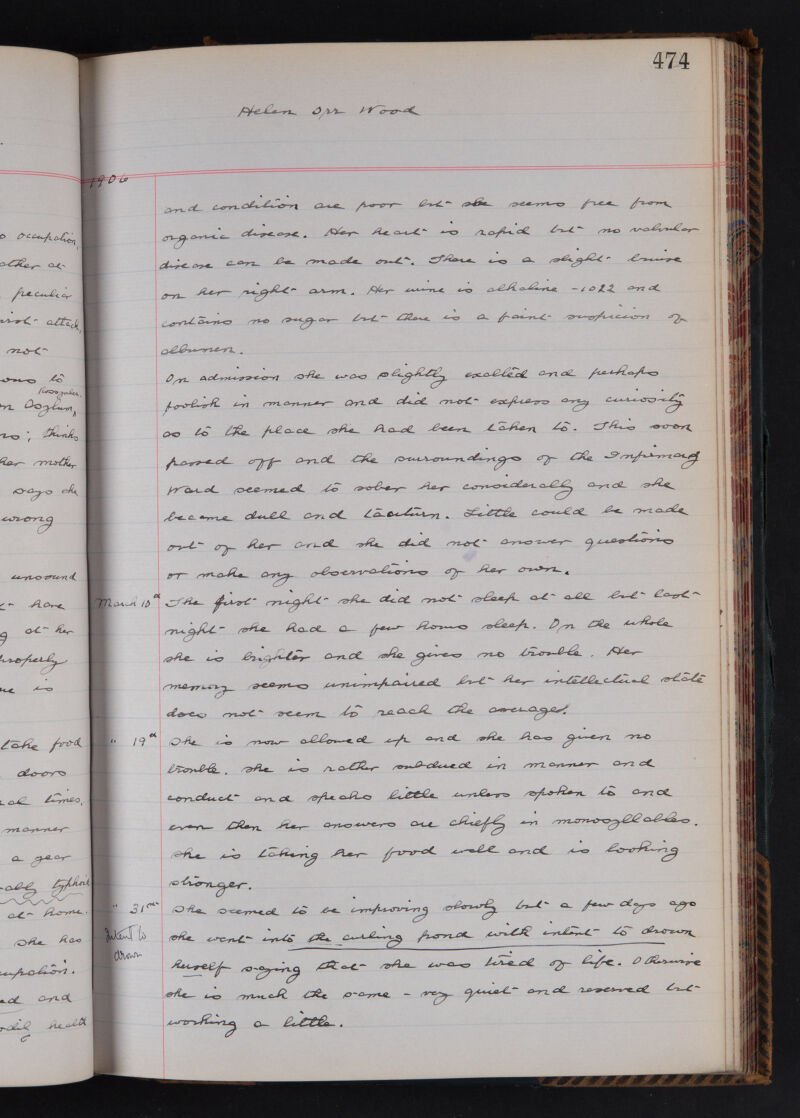 474
Helen Orr Wood
1906
and condition are poor but she seems free from
organic disease. Her heart is rapid but no valvular
disease can be made out. There is a slight bruise
on her right arm. Her urine is alkaline - 1022 and
contains no sugar but there is a faint suspicion of
albumen.
On admission she was slightly exalted and perhaps
foolish in manner and did not express any curiosity
as to the place she had been taken to. This soon
passed off and the surroundings of the Infirmary
Ward seemed to sober her considerably and she
became dull and taciturn. Little could be made
out of her and she did not answer questions
or make any observations of her own.
March 10th The first night she did not sleep at all but last
night she had a few hours sleep. On the whole
she is brighter and she gives no trouble. Her
memory seems unimpaired but her intellectual state
does not seem to reach the average.
" 19th She is now allowed up and she has given no
trouble. She is rather subdued in manner and
conduct and speaks little unless spoken to and
even then her answers are chiefly in monosyllables.
She is taking her food well and is looking
stronger.
" 31st She seemed to be improving slowly but a few days ago
Intent to she went into the curling pond with intent to drown
drown herself saying that she was tired of life. Otherwise
she is much the same - very quiet and reserved but
working a little.
occupation,
other at
peculiar
first attack,
not
to
Asylum,
; thinks
her mother
says she
wrong
unsound
have
at her
properly
is
take food
doors
times.
manner
a year
typhoid
at home.
She has
occupation.
and
bodily health